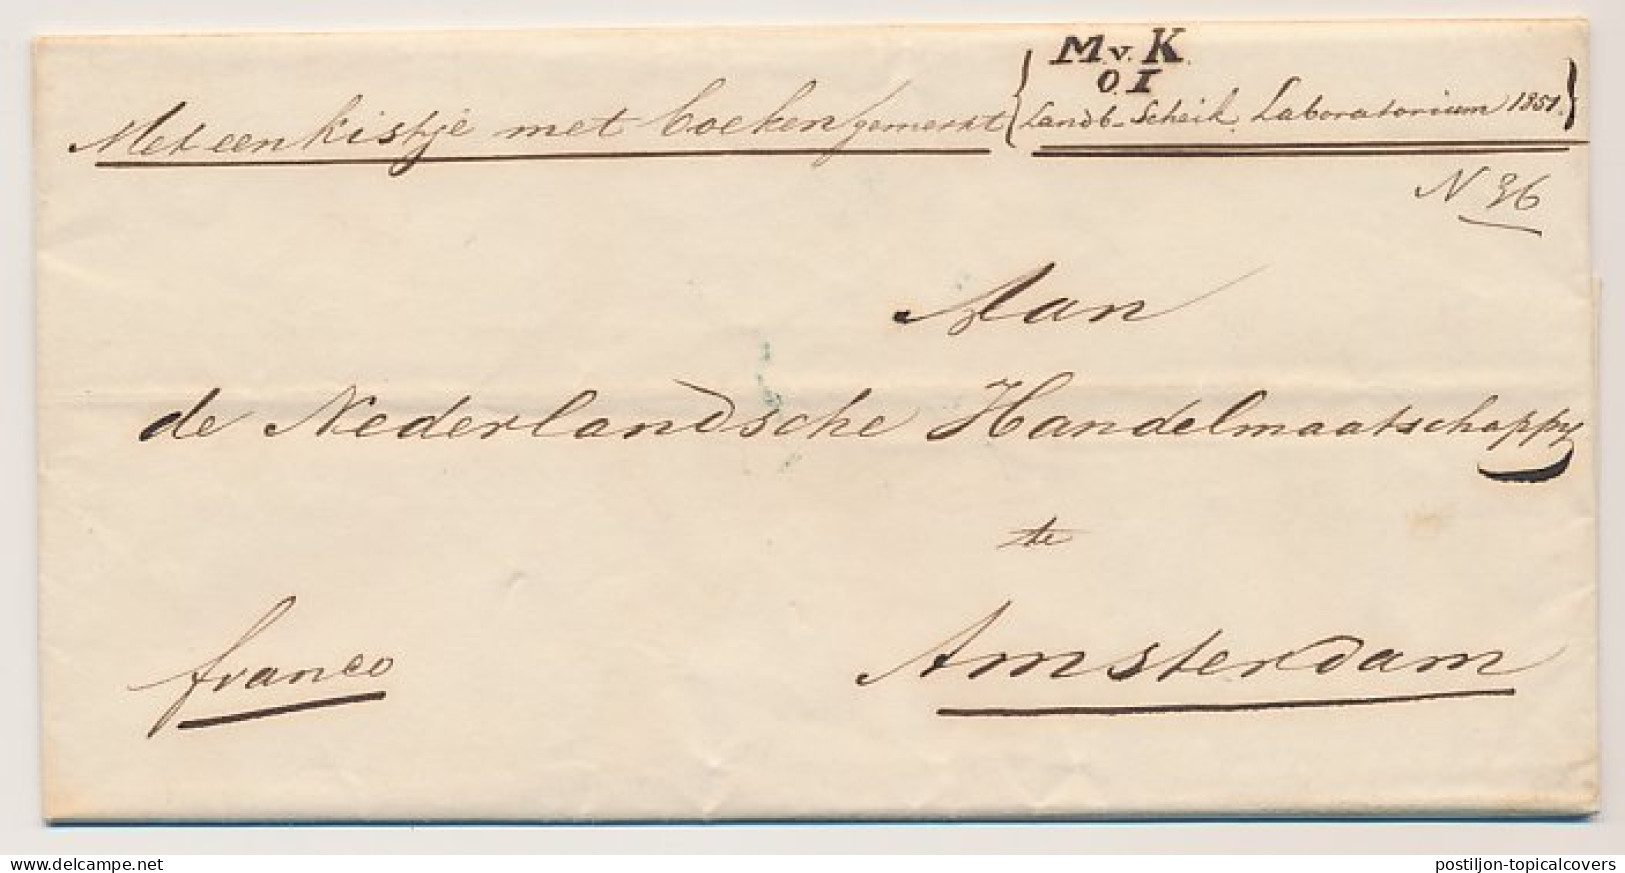 Met een kistje met boeken gemerkt { M.v.K.
O.I
Landb. Scheik. Laboratorium 1851. }
N 36
Aan
de Nederlandsche Handelmaatschappy
te
Amsterdam
franco
delcampe.net
postiljon-topicalcovers